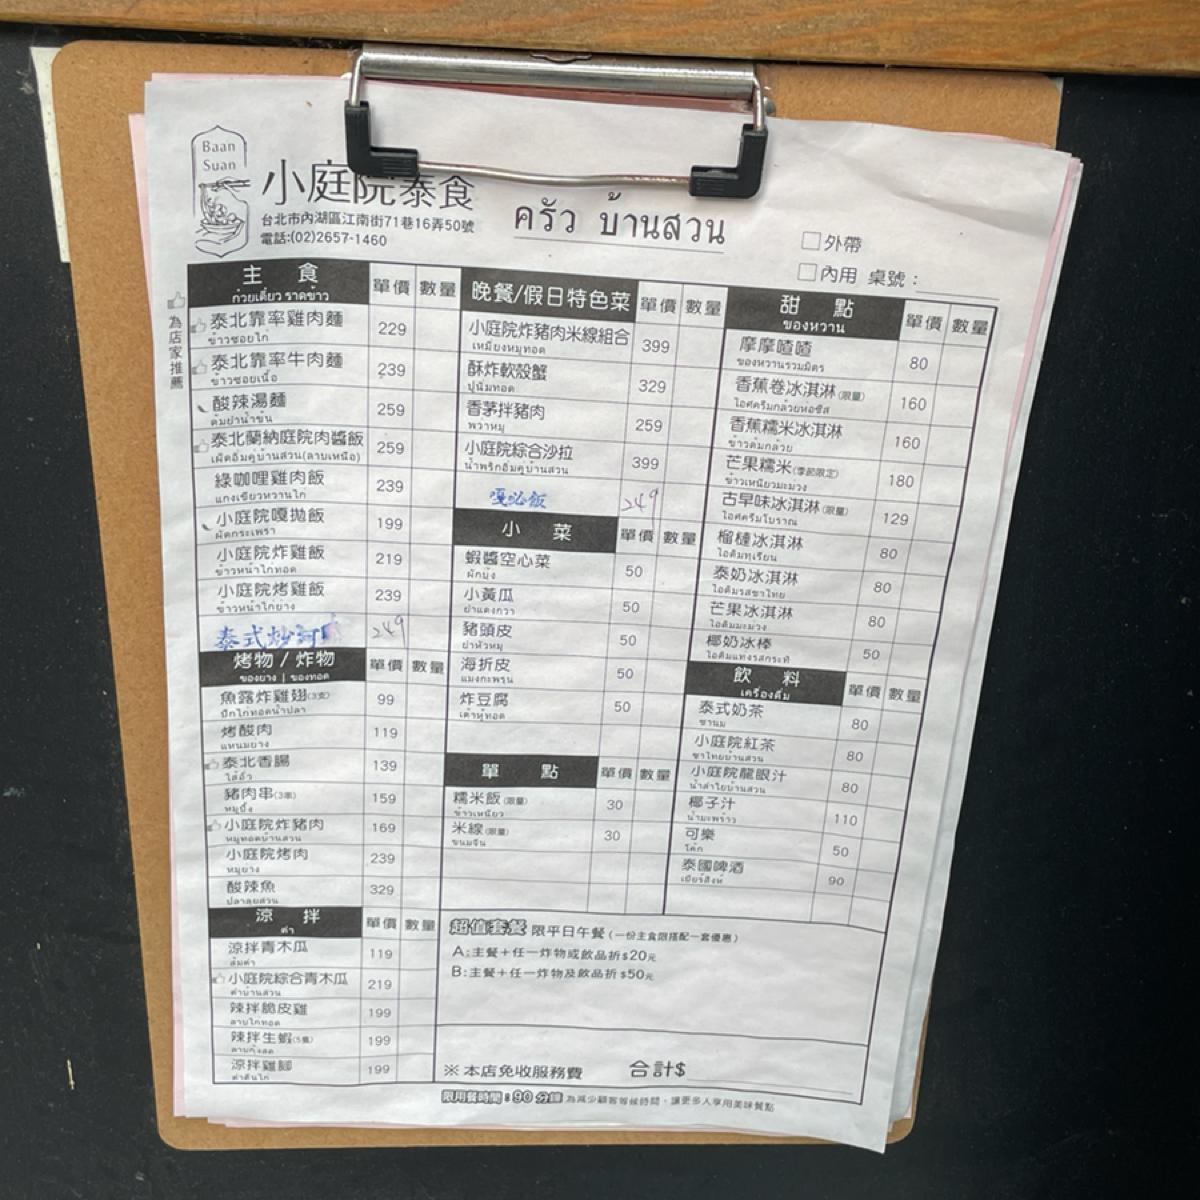 Baan
Suan
小庭院泰食
台北市內湖區江南街71巷16弄50號
電話:(02)2657-1460
ครัว บ้านสวน
外帶
內用 桌號：
為店家推薦
主 食 單價 數量
ก๋วยเตี๋ยว ราดข้าว
泰北靠率雞肉麵 229
ข้าวซอยไก่
泰北靠率牛肉麵 239
ข้าวซอยเนื้อ
酸辣湯麵 259
ต้มยำน้ำข้น
泰北蘭納庭院肉醬飯 259
綠咖哩雞肉飯 239
แกงเขียวหวานไก่
小庭院嘎拋飯 199
ผัดกระเพรา
小庭院炸雞飯 219
ข้าวหน้าไก่ทอด
小庭院烤雞飯 239
ข้าวหน้าไก่ย่าง
泰式炒河 249
烤物 / 炸物 單價 數量
ของย่าง | ของทอด
魚露炸雞翅(3支) 99
ปีกไก่ทอดน้ำปลา
烤酸肉 119
แหนมย่าง
泰北香腸 139
ไส้อั่ว
豬肉串(3串) 159
หมูปิ้ง
小庭院炸豬肉 169
หมูทอดบ้านสวน
小庭院烤肉 239
หมูย่าง
酸辣魚 329
ปลาลุยสวน
涼 拌 單價 數量
ตำ
涼拌青木瓜 119
ส้มตำ
小庭院綜合青木瓜 219
ตำบ้านสวน
辣拌脆皮雞 199
ลาบไก่ทอด
辣拌生蝦(5隻) 199
涼拌雞腳 199
ตำตีนไก่
晚餐/假日特色菜 單價 數量
小庭院炸豬肉米線組合 399
เหมี่ยงหมูทอด
酥炸軟殼蟹 329
ปูนิ่มทอด
香茅拌豬肉 259
พล่าหมู
小庭院綜合沙拉 399
嘎必飯 249
小 菜 單價 數量
蝦醬空心菜 50
ผักบุ้ง
小黃瓜 50
ยำแตงกวา
豬頭皮 50
ยำหัวหมู
海折皮 50
แมงกะพรุน
炸豆腐 50
เต้าหู้ทอด
單 點 單價 數量
糯米飯(限量) 30
ข้าวเหนียว
米線(限量) 30
ขนมจีน
甜 點 單價 數量
ของหวาน
摩摩喳喳 80
ของหวานรวมมิตร
香蕉卷冰淇淋(限量) 160
香蕉糯米冰淇淋 160
ข้าวต้มกล้วย
芒果糯米(季節限定) 180
ข้าวเหนียวมะม่วง
古早味冰淇淋(限量) 129
ไอศครีมโบราณ
榴槤冰淇淋 80
ไอติมทุเรียน
泰奶冰淇淋 80
ไอติมรสชาไทย
芒果冰淇淋 80
ไอติมมะม่วง
椰奶冰棒 50
ไอติมแท่งรสกระทิ
飲 料 單價 數量
เครื่องดื่ม
泰式奶茶 80
ชานม
小庭院紅茶 80
ชาไทยบ้านสวน
小庭院龍眼汁 80
น้ำลำไยบ้านสวน
椰子汁 110
น้ำมะพร้าว
可樂 50
โค้ก
泰國啤酒 90
เบียร์สิงห์
超值套餐 限平日午餐 (一份主食限搭配一套優惠)
A:主餐+任一炸物或飲品折$20元
B:主餐+任一炸物及飲品折$50元
※ 本店免收服務費 合計$
限用餐時間：90 分鐘 為減少顧客等候時間，讓更多人享用美味餐點